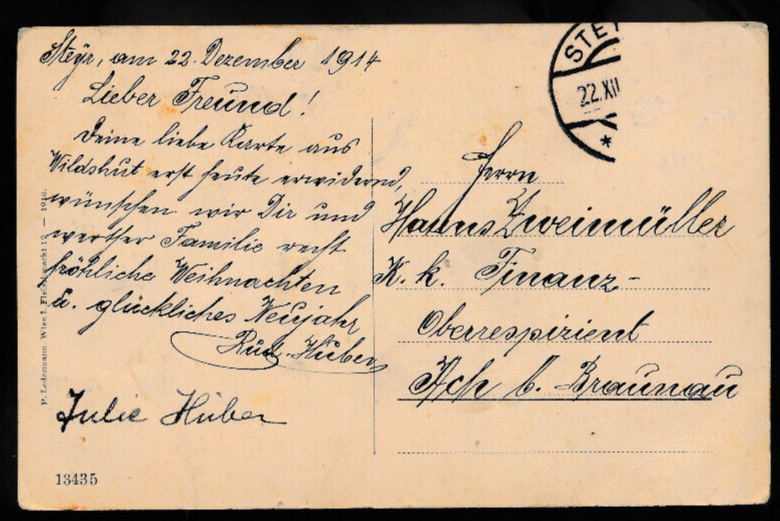 Steyr, am 22. Dezember 1914
Lieber Freund!
Deine liebe Karte aus
Wildshut erst heute erwidernd,
wünschen wir Dir und
werther Familie recht
fröhliche Weihnachten
u. glückliches Neujahr
Rud. Huber
Julie Huber
13435
P. Ledermann, Wien I, Fleischmarkt 12. — 1910.
STEY
22.XII
*
Herrn
Hanns Zweimüller
K. k. Finanz-
Oberrespizient
Ach b. Braunau